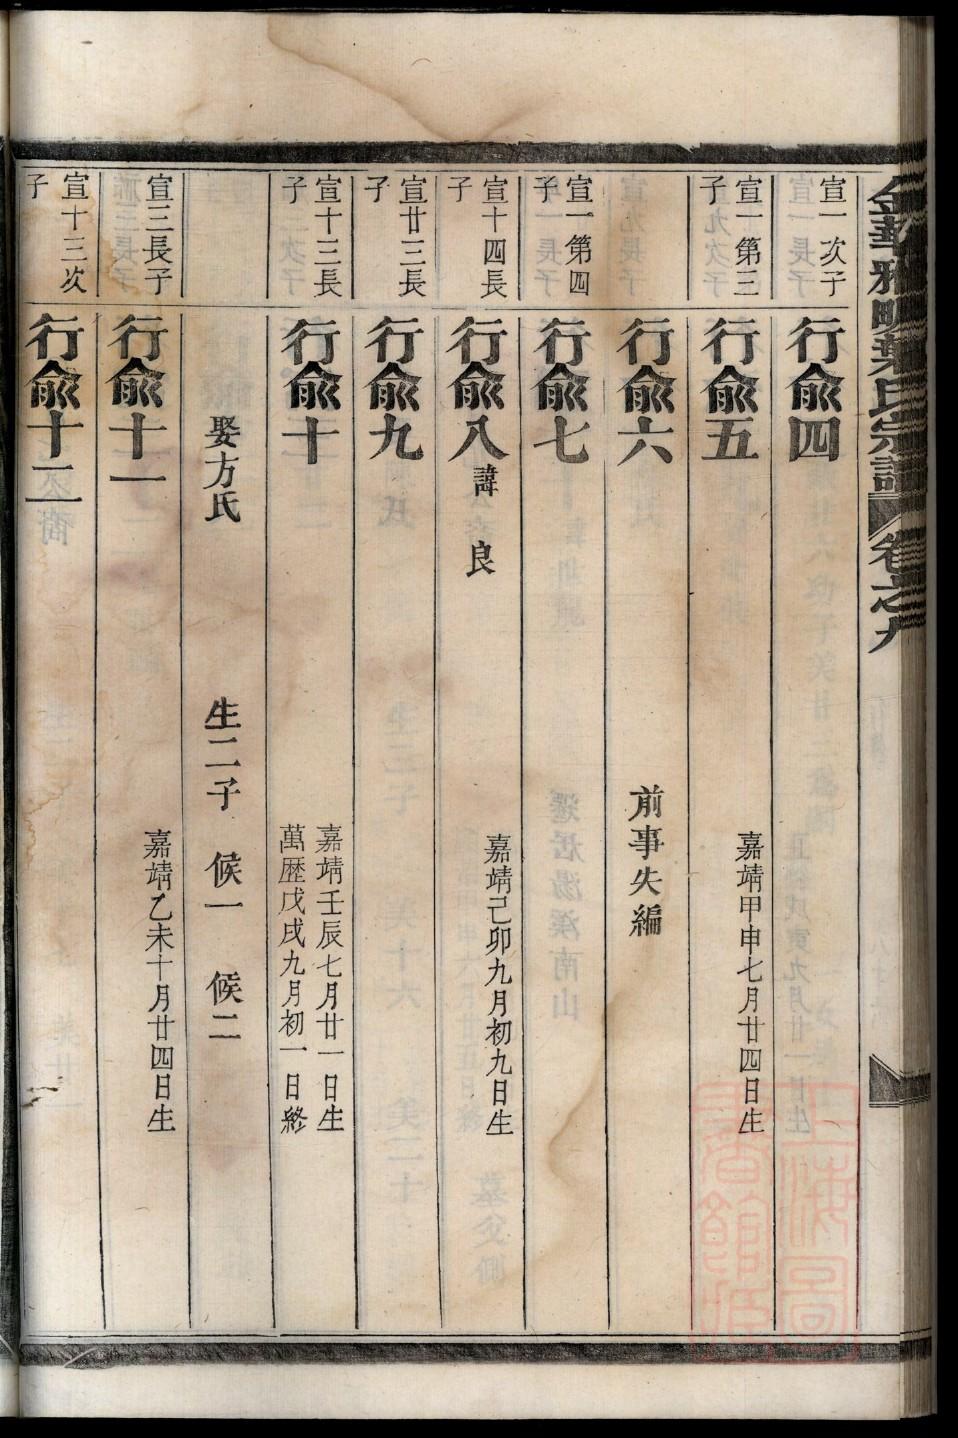 金華雅畈葉氏宗譜 卷之九
宣一次子
行俞四
宣一第三子
行俞五
嘉靖甲申七月廿四日生
行俞六
前事失編
宣一第四子
行俞七
宣十四長子
行俞八 諱良
嘉靖己卯九月初九日生
宣廿三長子
行俞九
宣十三長子
行俞十
嘉靖壬辰七月廿一日生
萬歷戊戌九月初一日終
娶方氏 生二子 候一 候二
宣三長子
行俞十一
嘉靖乙未十月廿四日生
宣十三次子
行俞十二
上海圖書館藏